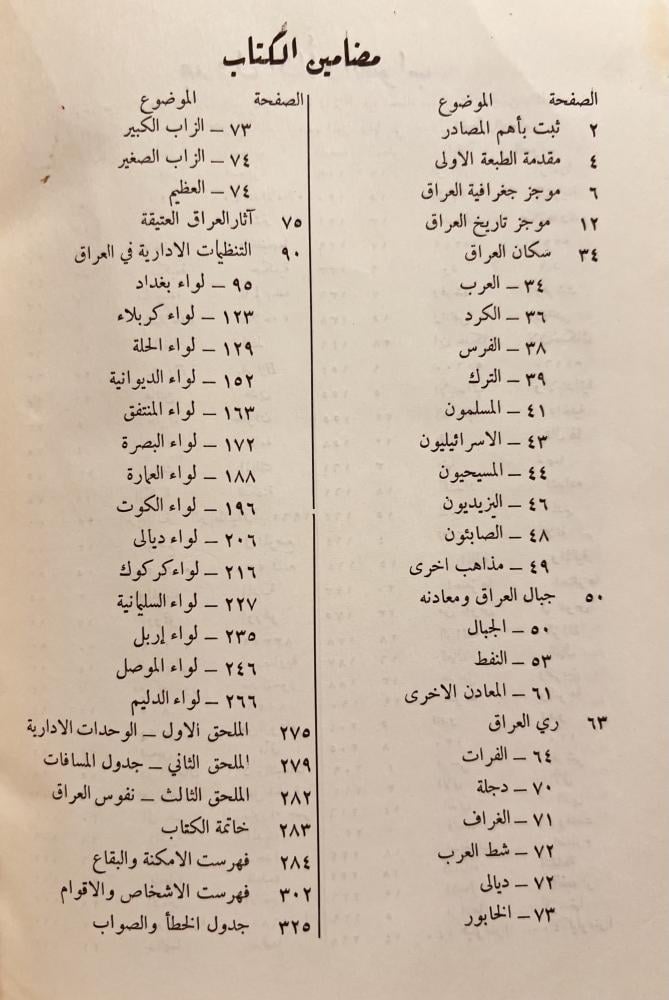 مضامين الكتاب
الصفحة الموضوع
٢ ثبت بأهم المصادر
٤ مقدمة الطبعة الاولى
٦ موجز جغرافية العراق
١٢ موجز تاريخ العراق
٣٤ سكان العراق
٣٤ – العرب
٣٦ – الكرد
٣٨ – الفرس
٣٩ – الترك
٤١ – المسلمون
٤٣ – الاسرائيليون
٤٤ – المسيحيون
٤٦ – اليزيديون
٤٨ – الصابئون
٤٩ – مذاهب اخرى
٥٠ جبال العراق ومعادنه
٥٠ – الجبال
٥٣ – النفط
٦١ – المعادن الاخرى
٦٣ ري العراق
٦٤ – الفرات
٧٠ – دجلة
٧١ – الغراف
٧٢ – شط العرب
٧٢ – ديالى
٧٣ – الخابور
الصفحة الموضوع
٧٣ – الزاب الكبير
٧٤ – الزاب الصغير
٧٤ – العظيم
٧٥ آثار العراق العتيقة
٩٠ التنظيمات الادارية في العراق
٩٥ – لواء بغداد
١٢٣ – لواء كربلاء
١٢٩ – لواء الحلة
١٥٢ – لواء الديوانية
١٦٣ – لواء المنتفق
١٧٢ – لواء البصرة
١٨٨ – لواء العمارة
١٩٦ – لواء الكوت
٢٠٦ – لواء ديالى
٢١٦ – لواء كركوك
٢٢٧ – لواء السليمانية
٢٣٥ – لواء إربل
٢٤٦ – لواء الموصل
٢٦٦ – لواء الدليم
٢٧٥ الملحق الاول – الوحدات الادارية
٢٧٩ الملحق الثاني – جدول المسافات
٢٨٢ الملحق الثالث – نفوس العراق
٢٨٣ خاتمة الكتاب
٢٨٤ فهرست الامكنة والبقاع
٣٠٢ فهرست الاشخاص والاقوام
٣٢٥ جدول الخطأ والصواب